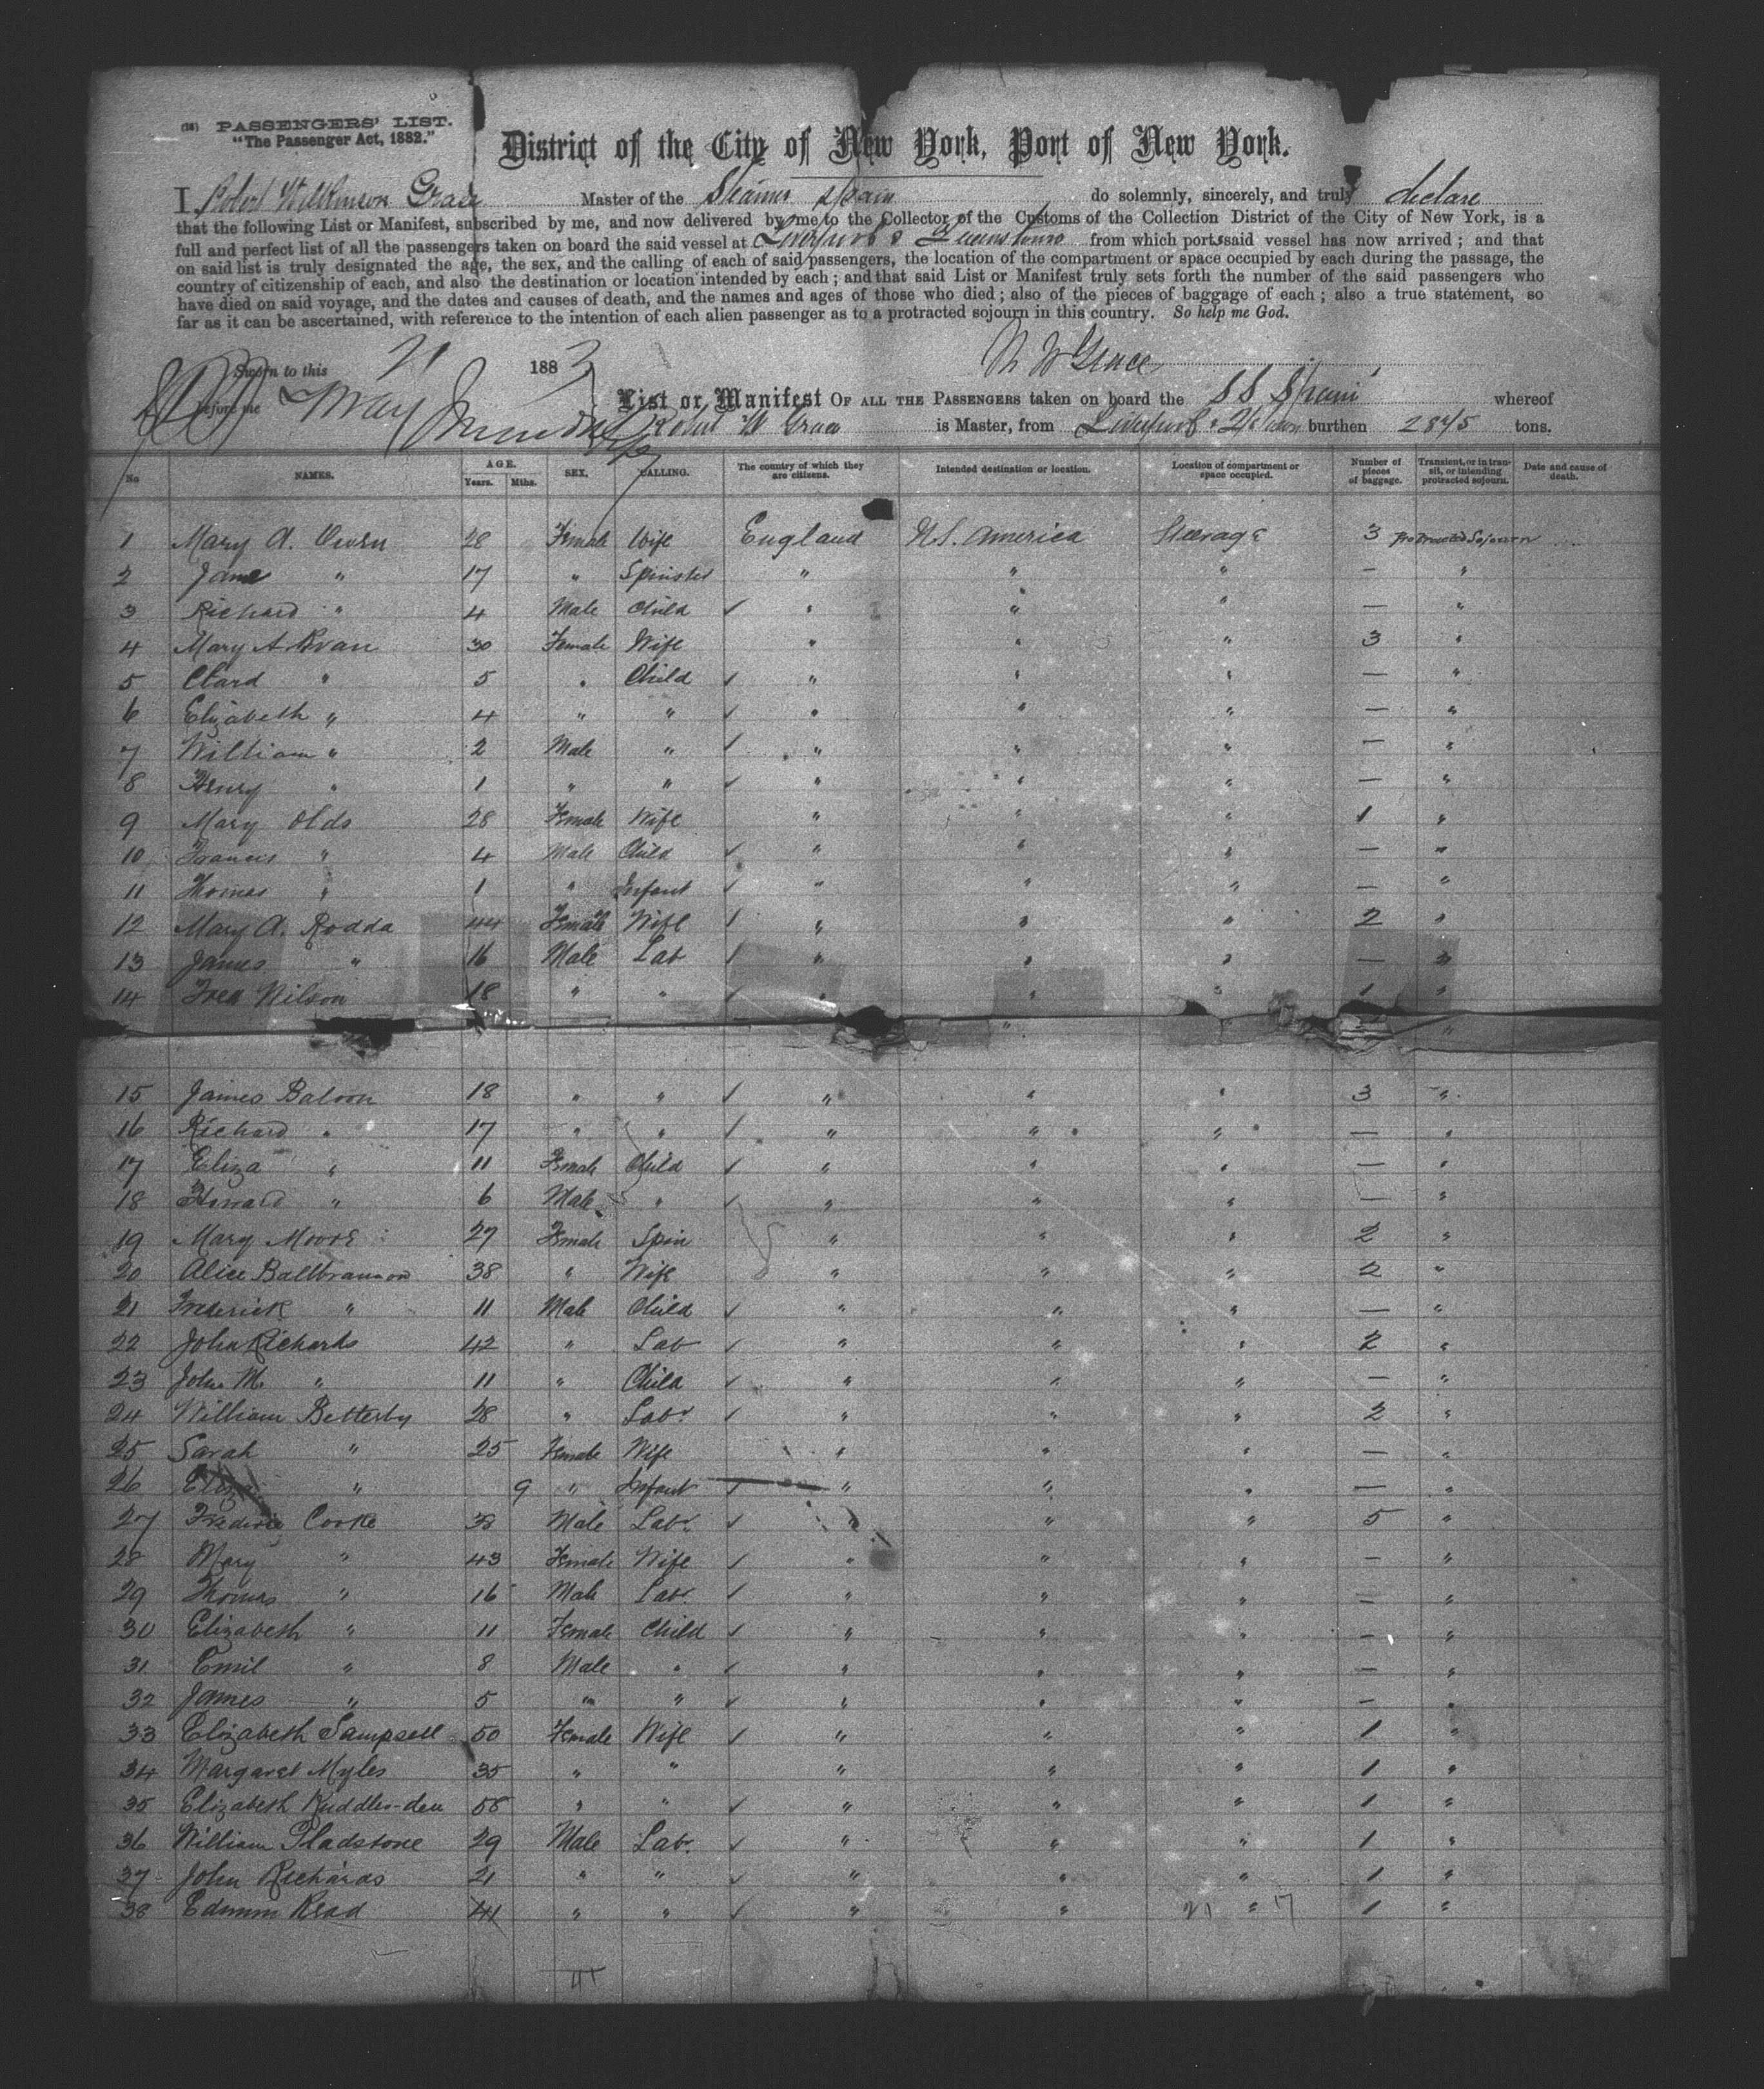 (18) PASSENGERS' LIST.
"The Passenger Act, 1882."
District of the City of New York, Port of New York.
I, Robert Wilkinson Grace Master of the Steamer Spain do solemnly, sincerely, and truly declare
that the following List or Manifest, subscribed by me, and now delivered by me to the Collector of the Customs of the Collection District of the City of New York, is a
full and perfect list of all the passengers taken on board the said vessel at Liverpool & Queenstown from which ports said vessel has now arrived; and that
on said list is truly designated the age, the sex, and the calling of each of said passengers, the location of the compartment or space occupied by each during the passage, the
country of citizenship of each, and also the destination or location intended by each; and that said List or Manifest truly sets forth the number of the said passengers who
have died on said voyage, and the dates and causes of death, and the names and ages of those who died; also of the pieces of baggage of each; also a true statement, so
far as it can be ascertained, with reference to the intention of each alien passenger as to a protracted sojourn in this country. So help me God.
Sworn to this 21 1883 R W Grace
before me May
List or Manifest OF ALL THE PASSENGERS taken on board the SS Spain whereof
Robert W Grace is Master, from Liverpool & Q'town burthen 2845 tons.
No NAMES. AGE. Years. Mths. SEX. CALLING. The country of which they are citizens. Intended destination or location. Location of compartment or space occupied. Number of pieces of baggage. Transient, or in transit, or intending protracted sojourn. Date and cause of death.
1 Mary A. Owen 28 Female Wife England U.S. America Steerage 3 Protracted Sojourn
2 Jane " 17 " Spinster " " " — "
3 Richard " 4 Male Child ✓ " " " — "
4 Mary A Bvan 30 Female Wife " " " 3 "
5 Clara " 5 " Child ✓ " " " — "
6 Elizabeth " 4 " " ✓ " " " — "
7 William " 2 Male " ✓ " " " — "
8 Henry " 1 " " ✓ " " " — "
9 Mary Olds 28 Female Wife " " " 1 "
10 Francis " 4 Male Child ✓ " " " — "
11 Thomas " 1 " Infant ✓ " " " — "
12 Mary A. Rodda 44 Female Wife ✓ " " " 2 "
13 James " 16 Male Lab ✓ " " " — "
14 Fred Wilson 18 " " ✓ " " " 1 "
15 James Baloon 18 " " ✓ " " " 3 "
16 Richard " 17 " " ✓ " " " — "
17 Eliza " 11 Female Child ✓ " " " — "
18 Howard " 6 Male " ✓ " " " — "
19 Mary Moore 27 Female Spin " " " 2 "
20 Alice Balbrannon 38 " Wife " " " 2 "
21 Frederick " 11 Male Child ✓ " " " — "
22 John Richards 42 " Lab ✓ " " " 2 "
23 John M. " 11 " Child ✓ " " " — "
24 William Betterby 28 " Labr ✓ " " " 2 "
25 Sarah " 25 Female Wife " " " — "
26 Eliza " 9 " Infant ✓ " " " — "
27 Frederic Cooke 38 Male Labr ✓ " " " 5 "
28 Mary " 43 Female Wife ✓ " " " — "
29 Thomas " 16 Male Lab. ✓ " " " — "
30 Elizabeth " 11 Female Child ✓ " " " — "
31 Emil " 8 Male " ✓ " " " — "
32 James " 5 " " ✓ " " " — "
33 Elizabeth Sampsell 50 Female Wife ✓ " " " 1 "
34 Margaret Myles 35 " " " " " 1 "
35 Elizabeth Ruddles-den 58 " " ✓ " " " 1 "
36 William Gladstone 29 Male Lab. ✓ " " " 1 "
37 John Richards 21 " " ✓ " " " 1 "
38 Edmm Read 41 " " ✓ " " 21 " 17 1 "